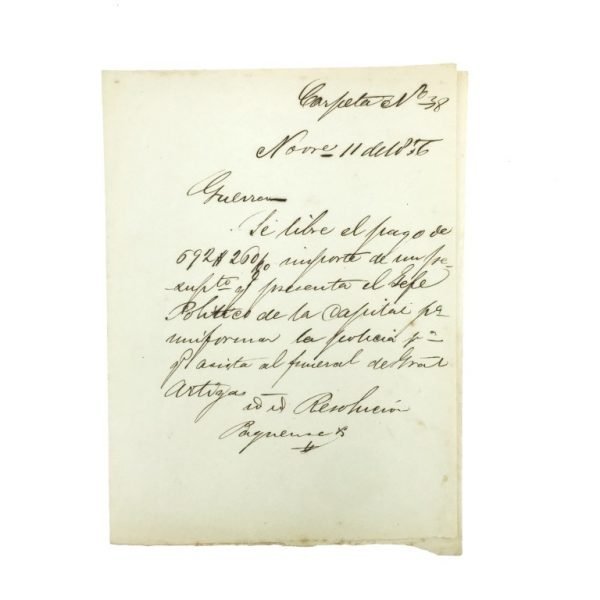 Carpeta No 38
Novre 11 de 1856
Guerra
Se libre el pago de
692$ 260 importe de un pre-
supto q presenta el Gefe
Politico de la Capital pa
uniformar la policia pa
q asista al funeral del Gral
Artigas
id id Resolucion
Paguense